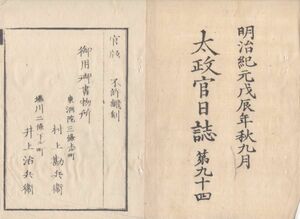 明治紀元戊辰年秋九月
太政官日誌 第九十四
官版 不許翻刻
御用御書物所
東洞院三條上ル町
村上勘兵衛
堀川二條下ル町
井上治兵衛